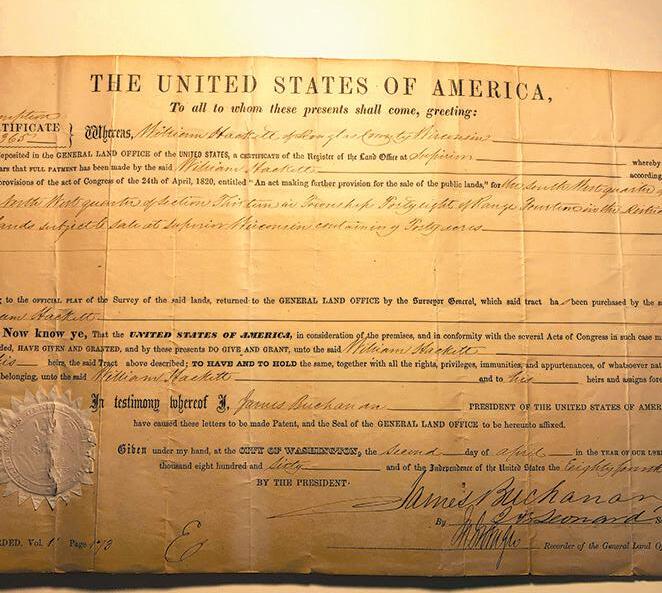 THE UNITED STATES OF AMERICA,
To all to whom these presents shall come, greeting:
emption
RTIFICATE
365 } Whereas, William Hackett of Douglas County Wisconsin
deposited in the GENERAL LAND OFFICE of the UNITED STATES, a CERTIFICATE of the Register of the Land Office at Superior whereby
ars that FULL PAYMENT has been made by the said William Hackett according
provisions of the act of Congress of the 24th of April, 1820, entitled "An act making further provision for the sale of the public lands," for the South West quarter
North West quarter of section Thirteen in Township Forty eight of Range Fourteen in the District
Lands subject to sale at Superior Wisconsin containing Forty acres
g to the OFFICIAL PLAT of the Survey of the said lands, returned to the GENERAL LAND OFFICE by the Surveyor General, which said tract ha been purchased by the
iam Hackett
Now know ye, That the UNITED STATES OF AMERICA, in consideration of the premises, and in conformity with the several Acts of Congress in such case m
ded, HAVE GIVEN AND GRANTED, and by these presents DO GIVE AND GRANT, unto the said William Hackett
his heirs, the said Tract above described; TO HAVE AND TO HOLD the same, together with all the rights, privileges, immunities, and appurtenances, of whatsoever nat
belonging, unto the said William Hackett and to his heirs and assigns forev
In testimony whereof I, James Buchanan PRESIDENT OF THE UNITED STATES OF AMER
have caused these letters to be made Patent, and the Seal of the GENERAL LAND OFFICE to be hereunto affixed.
Given under my hand, at the CITY OF WASHINGTON, the second day of April in the YEAR OF OUR LORD
thousand eight hundred and sixty and of the Independence of the United States the Eighty fourth
BY THE PRESIDENT:
James Buchanan
By Leonard
Recorder of the General Land O
RDED, Vol. 1 Page 173
E